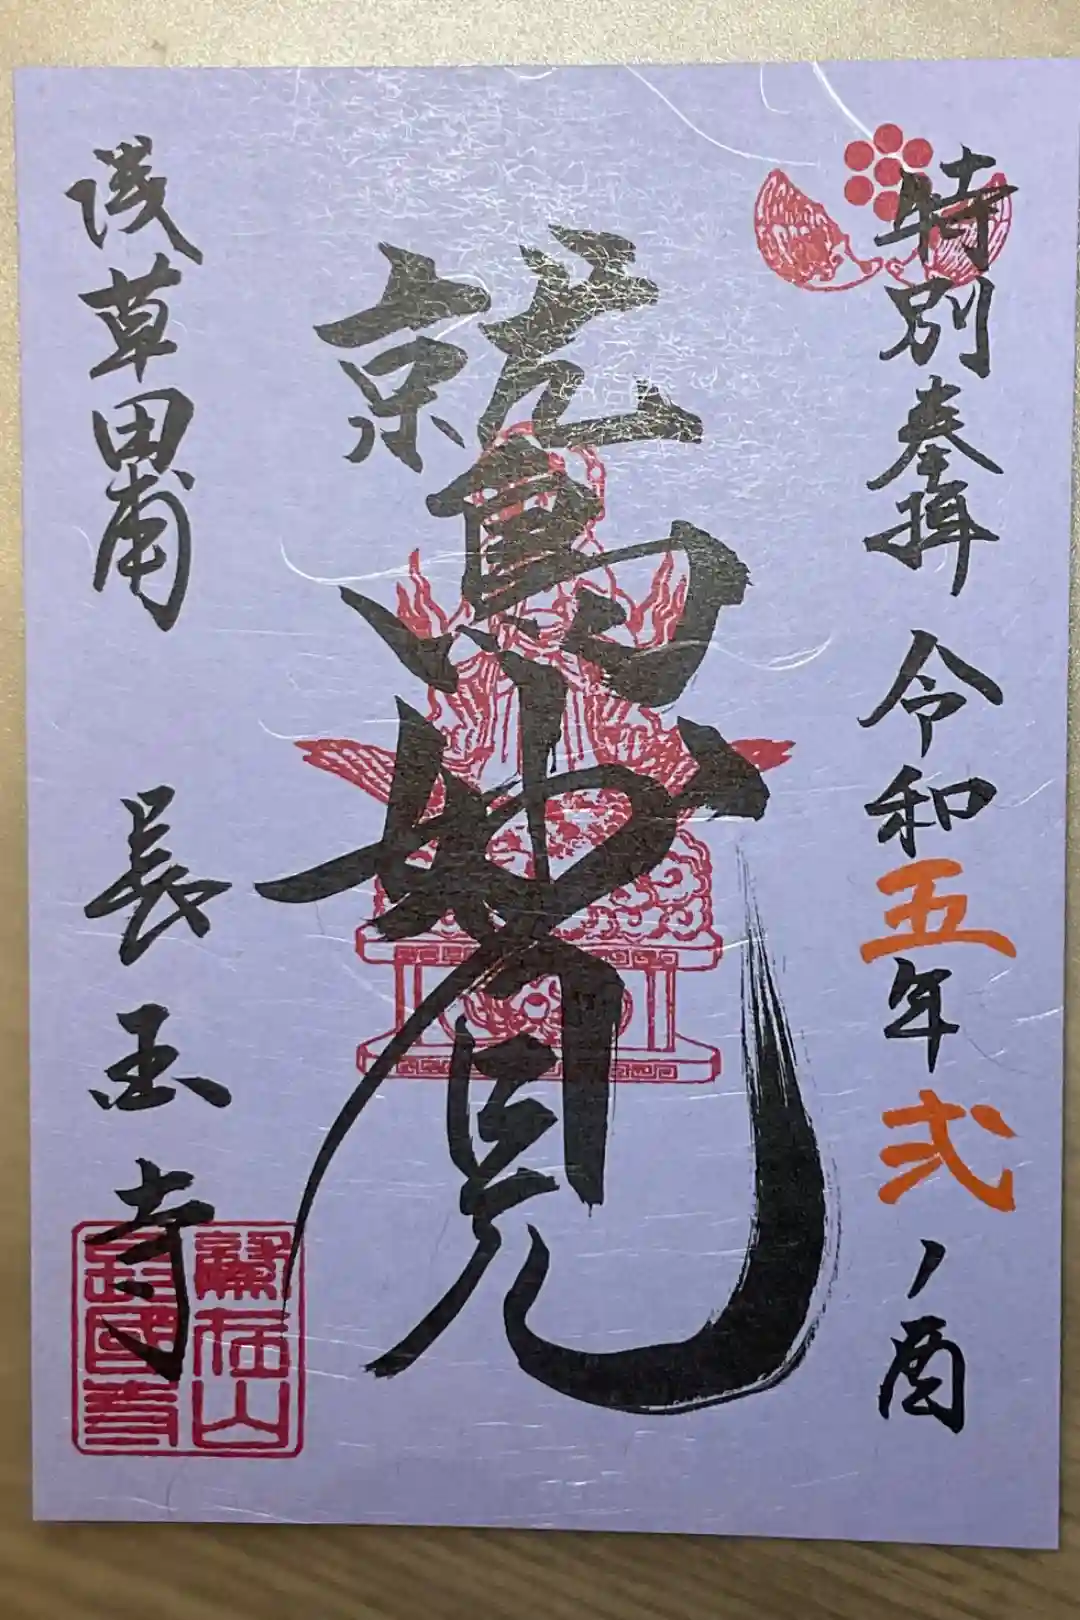 特別奉拝 令和五年弐ノ酉
鷲妙見
浅草田甫 長国寺
鷲在山
長國寺